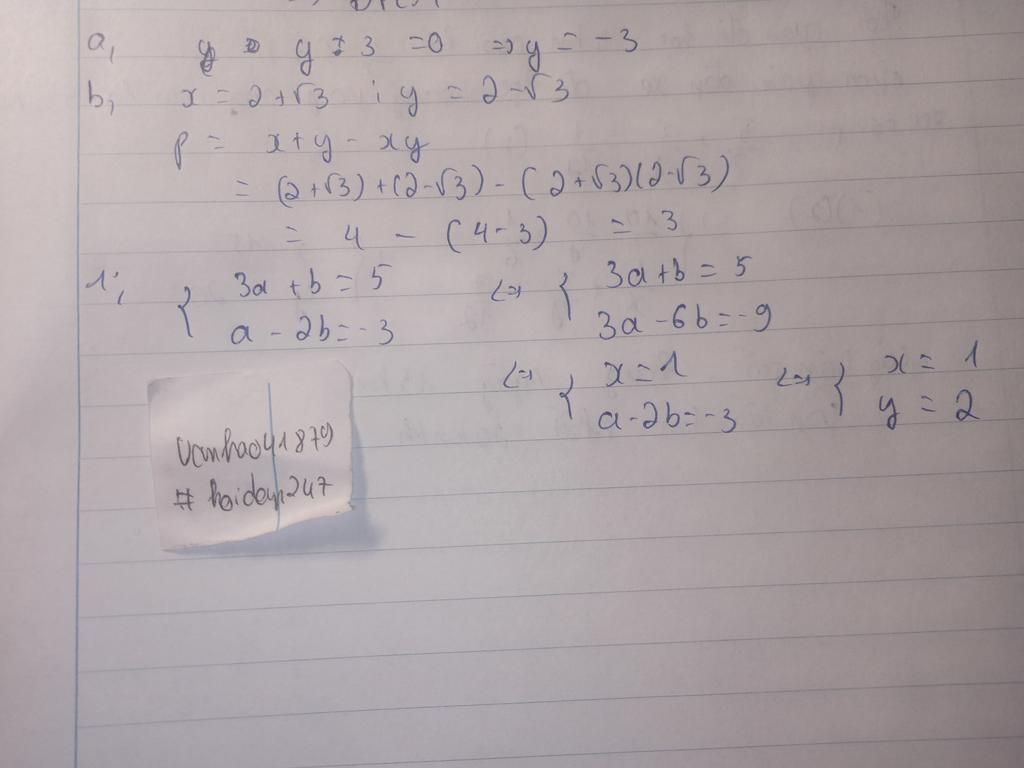 a, y + 3 = 0 => y = -3
b, x = 2+√3 ; y = 2-√3
P = x+y - xy
= (2+√3)+(2-√3) - (2+√3)(2-√3)
= 4 - (4-3) = 3
1, { 3a+b = 5 <=> { 3a+b = 5
a - 2b = -3 3a - 6b = -9
<=> { x = 1 <=> { x = 1
a - 2b = -3 y = 2
Vanhao41879
# hoidap247